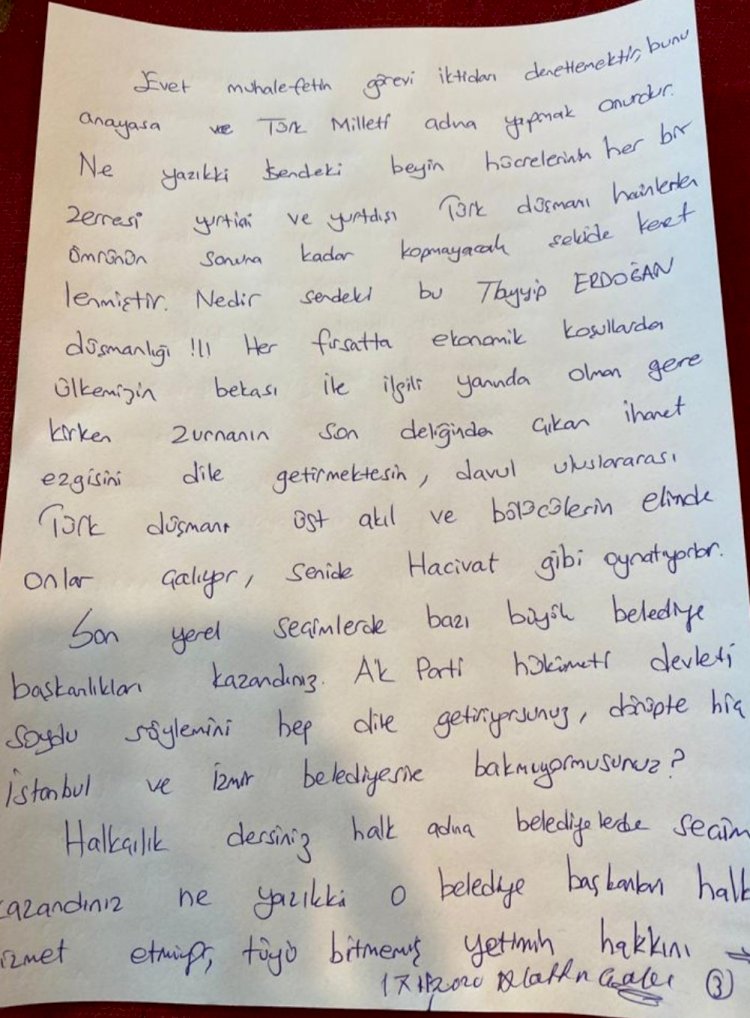 Evet muhalefetin görevi iktidarı denetlemektir, bunu
anayasa ve Türk Milleti adına yapmak onurdur.
Ne yazıkki sendeki beyin hücrelerinin her bir
zerresi yurtiçi ve yurtdışı Türk düşmanı hainlerden
ömrünün sonuna kadar kopmayacak şekide kenet
lenmiştir. Nedir sendeki bu Tayyip ERDOĞAN
düşmanlığı !!! Her fırsatta ekonomik koşullarda
ülkemizin bekası ile ilgili yanında olman gere
kirken zurnanın son deliğinden çıkan ihanet
ezgisini dile getirmektesin, davul uluslararası
Türk düşmanı üst akıl ve bölücülerin elinde
onlar çalıyor, senide Hacivat gibi oynatıyorlar.
Son yerel seçimlerde bazı büyük belediye
başkanlıkları kazandınız. AK Parti hükümeti devleti
soydu söylemini hep dile getiriyorsunuz, dönüpte hiç
İstanbul ve İzmir belediyesine bakmıyormusunuz?
Halkçılık dersiniz halk adına belediyelerde seçim
kazandınız ne yazıkki o belediye başkanları halk
izmet etmiyor, tüyü bitmemiş yetimin hakkını →
③